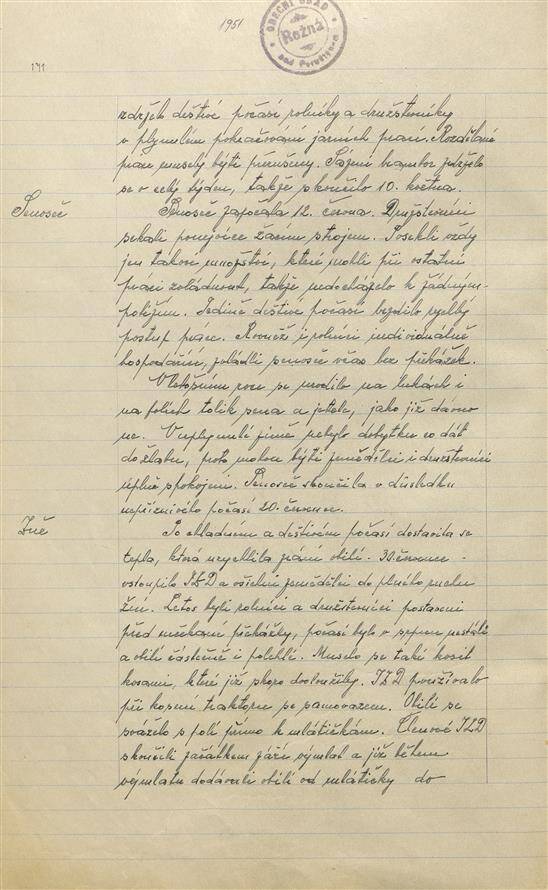 1951
OBECNÍ ÚŘAD
Rožná
nad Pernštejnem
141
zdrželo deštivé počasí rolníky a družstevníky
v plynulém pokračování jarních prací. Rozdělané
práce musely býti přerušeny. Sázení brambor zdrželo
se o celý týden, takže skončilo 10. května.
Senoseč
Senoseč započala 12. června. Družstevníci
sekali ponejvíce žacím strojem. Posekli vždy
jen takové množství, které mohli při ostatní
práci zvládnout, takže nedocházelo k žádným
potížím. Jedině deštivé počasí brzdilo rychlý
postup práce. Rovněž i rolníci individuálně
hospodařící, zvládli senoseč včas bez překážek.
V letošním roce se urodilo na lukách i
na polích tolik sena a jetele, jako již dávno
ne. V uplynulé zimě nebylo dobytku co dát
do žlabu, proto mohou býti zemědělci i družstevníci
úplně spokojeni. Senoseč skončila v důsledku
nepříznivého počasí 20. července.
Žně
Po chladném a deštivém počasí dostavila se
tepla, která urychlila zrání obilí. 30. července
vstoupilo JZD a všichni zemědělci do plného ruchu
žní. Letos byli rolníci a družstevníci postaveni
před nečekané překážky, počasí bylo v srpnu nestálé
a obilí částečně i polehlé. Muselo se také kosit
kosami, které již skoro dosloužily. JZD používalo
při kosení traktoru se samovazem. Obilí se
sváželo s polí přímo k mlátičkám. Členové JZD
skončili začátkem září výmlat a již během
výmlatu dodávali obilí od mlátičky do